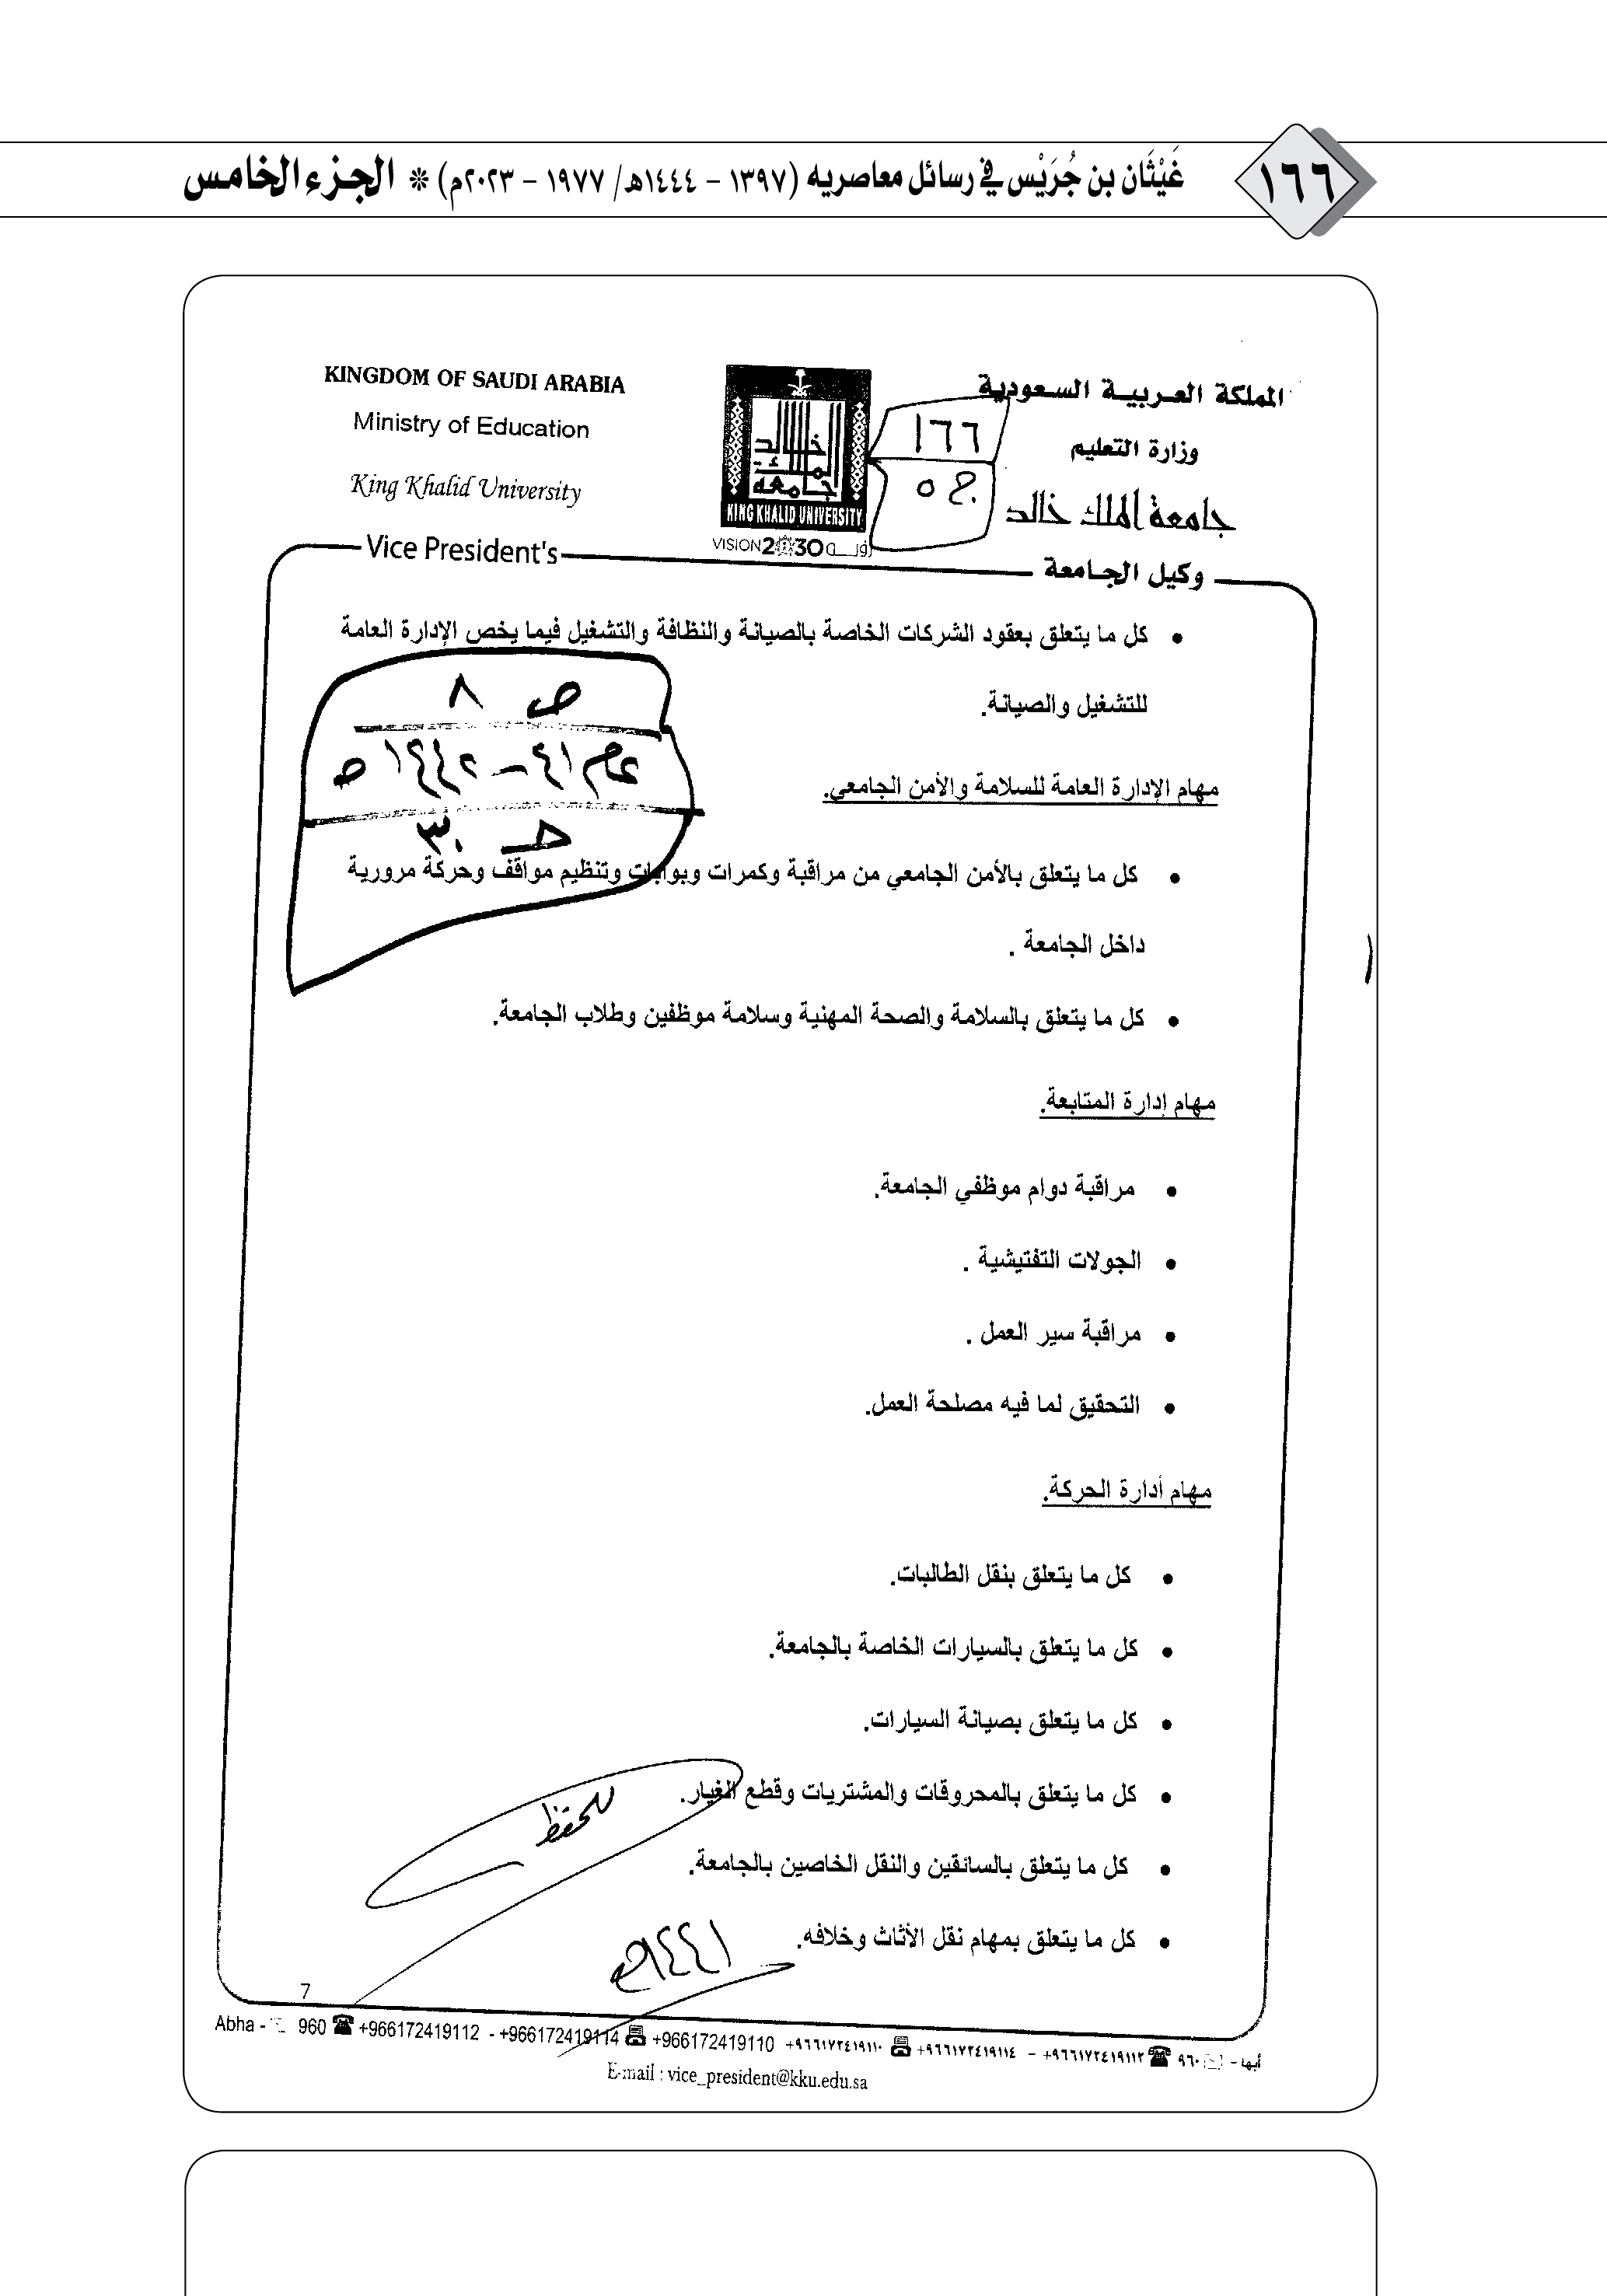 ١٦٦
غَيْثَان بن جُرَيْس في رسائل معاصريه (١٣٩٧ – ١٤٤٤هـ/ ١٩٧٧ – ٢٠٢٣م) * الجزء الخامس
المملكة العربية السعودية
وزارة التعليم
جامعة الملك خالد
وكيل الجامعة
١٦٦
ج ٥
جامعة الملك خالد
KING KHALID UNIVERSITY
VISION 2030 رؤية
KINGDOM OF SAUDI ARABIA
Ministry of Education
King Khalid University
Vice President's
• كل ما يتعلق بعقود الشركات الخاصة بالصيانة والنظافة والتشغيل فيما يخص الإدارة العامة
للتشغيل والصيانة.
ص ٨
عام ٤١ – ١٤٤٢هـ
مهام الإدارة العامة للسلامة والأمن الجامعي.
• كل ما يتعلق بالأمن الجامعي من مراقبة وكمرات وبوابات وتنظيم مواقف وحركة مرورية
داخل الجامعة .
• كل ما يتعلق بالسلامة والصحة المهنية وسلامة موظفين وطلاب الجامعة.
مهام إدارة المتابعة.
• مراقبة دوام موظفي الجامعة.
• الجولات التفتيشية .
• مراقبة سير العمل .
• التحقيق لما فيه مصلحة العمل.
مهام أدارة الحركة.
• كل ما يتعلق بنقل الطالبات.
• كل ما يتعلق بالسيارات الخاصة بالجامعة.
• كل ما يتعلق بصيانة السيارات.
• كل ما يتعلق بالمحروقات والمشتريات وقطع الغيار.
للحفظ
• كل ما يتعلق بالسائقين والنقل الخاصين بالجامعة.
• كل ما يتعلق بمهام نقل الأثاث وخلافه.
7
Abha - 960 +966172419112 - +966172419114 +966172419110 +٩٦٦١٧٢٤١٩١١٠ +٩٦٦١٧٢٤١٩١١٤ – +٩٦٦١٧٢٤١٩١١٢ ٩٦٠ – أبها
E-mail : vice_president@kku.edu.sa